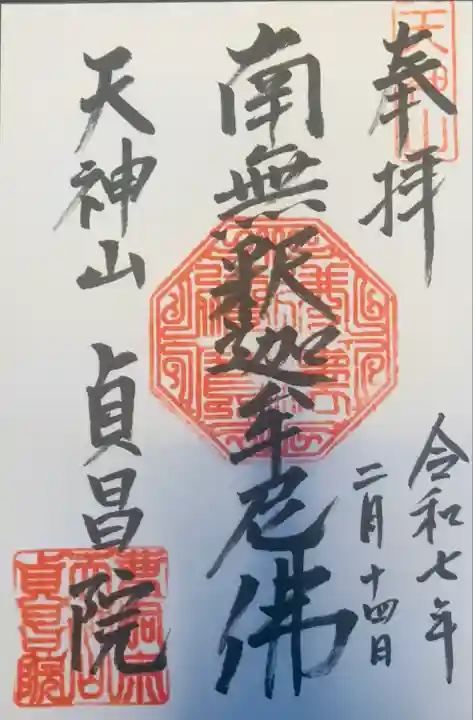 奉拝
天神山
令和七年
二月十四日
南無釈迦牟尼佛
天神山 貞昌院
曹洞宗
天神山
貞昌院